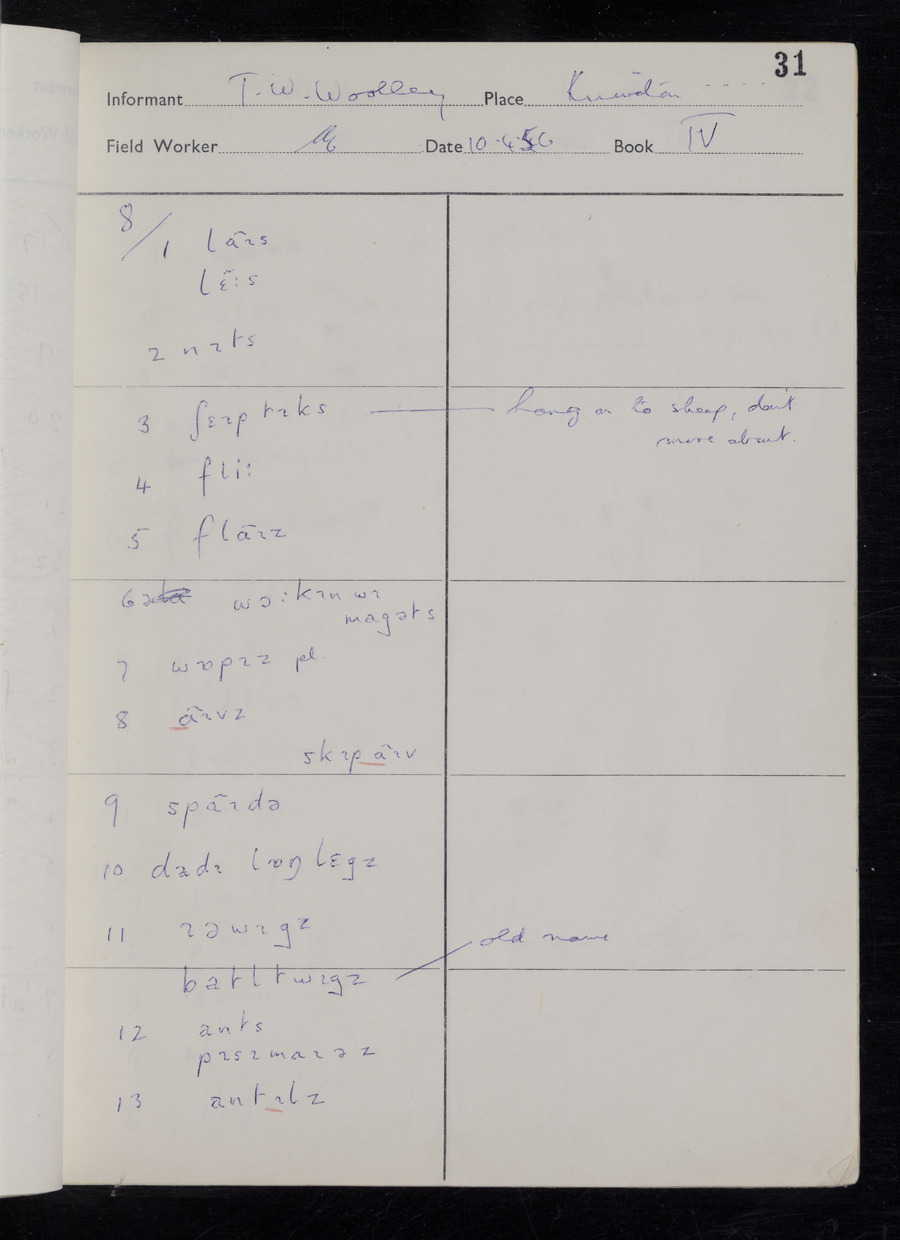 31
Informant T. W. Woolley Place Kniveton
Field Worker Date 10.4.56 Book IV
8/1 lāɪs
lɛ̃ːs
2 nɪts
3 ʃɛɪp tɪks hang on to sheep, don't
move about.
4 fliː
5 flāɪz
6 wəːkɪn wɪ
magəts
7 wɒpɪz pl.
8 āɪvz
skɪp āɪv
9 spāɪdə
10 dadɪ lɒŋ lɛgz
11 ɪəwɪgz old name
batltwɪgz
12 ants
pɪsɪmaɪəz
13 antɪlz